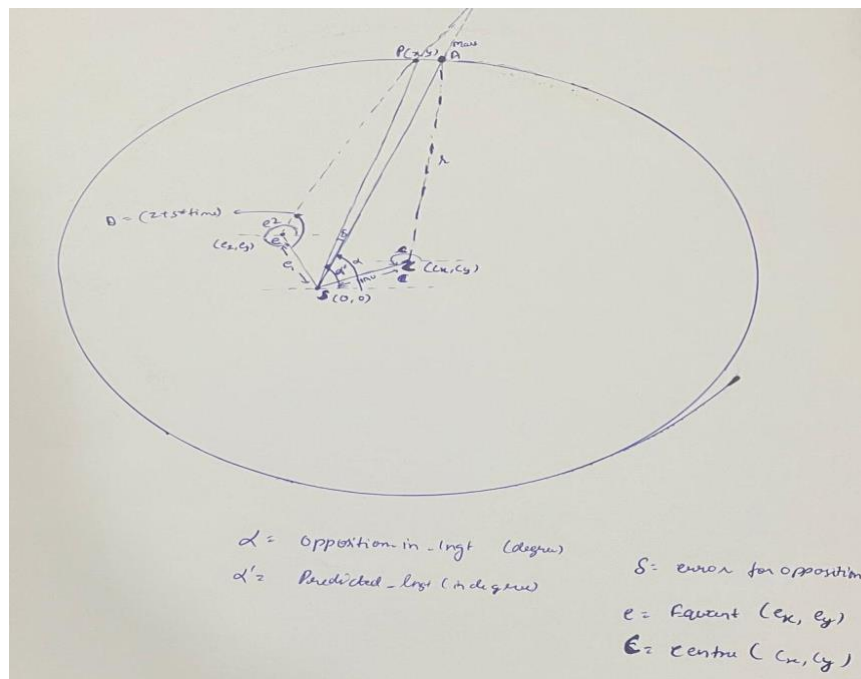 P(x,y)
Mars
A
r
D = (z+s*time)
e2
(ex,ey)
e
e1
δ
α
α'
c
(cx,cy)
S (0,0)
α = Opposition-in-lngt (degree)
α' = Predicted-lngt (in degree)
δ = error for opposition
e = Equant (ex, ey)
C = centre (cx, cy)